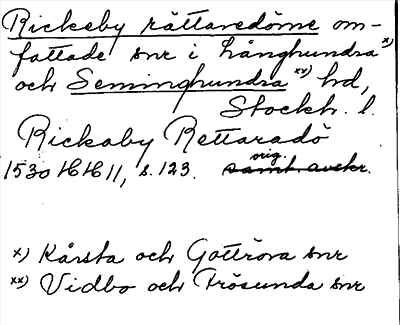 Rickeby rättaredöme om-
fattade snr i Långhundra x)
och Seminghundra xx) hd,
Stockh. l.
Rickaby Rettaradö
1530 HH 11, s. 123. orig. samt. avskr.
x) Kårsta och Gottröra snr
xx) Vidbo och Frösunda snr